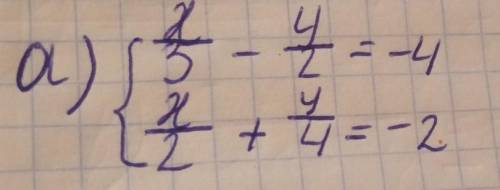 a) { x/3 - y/2 = -4
x/2 + y/4 = -2